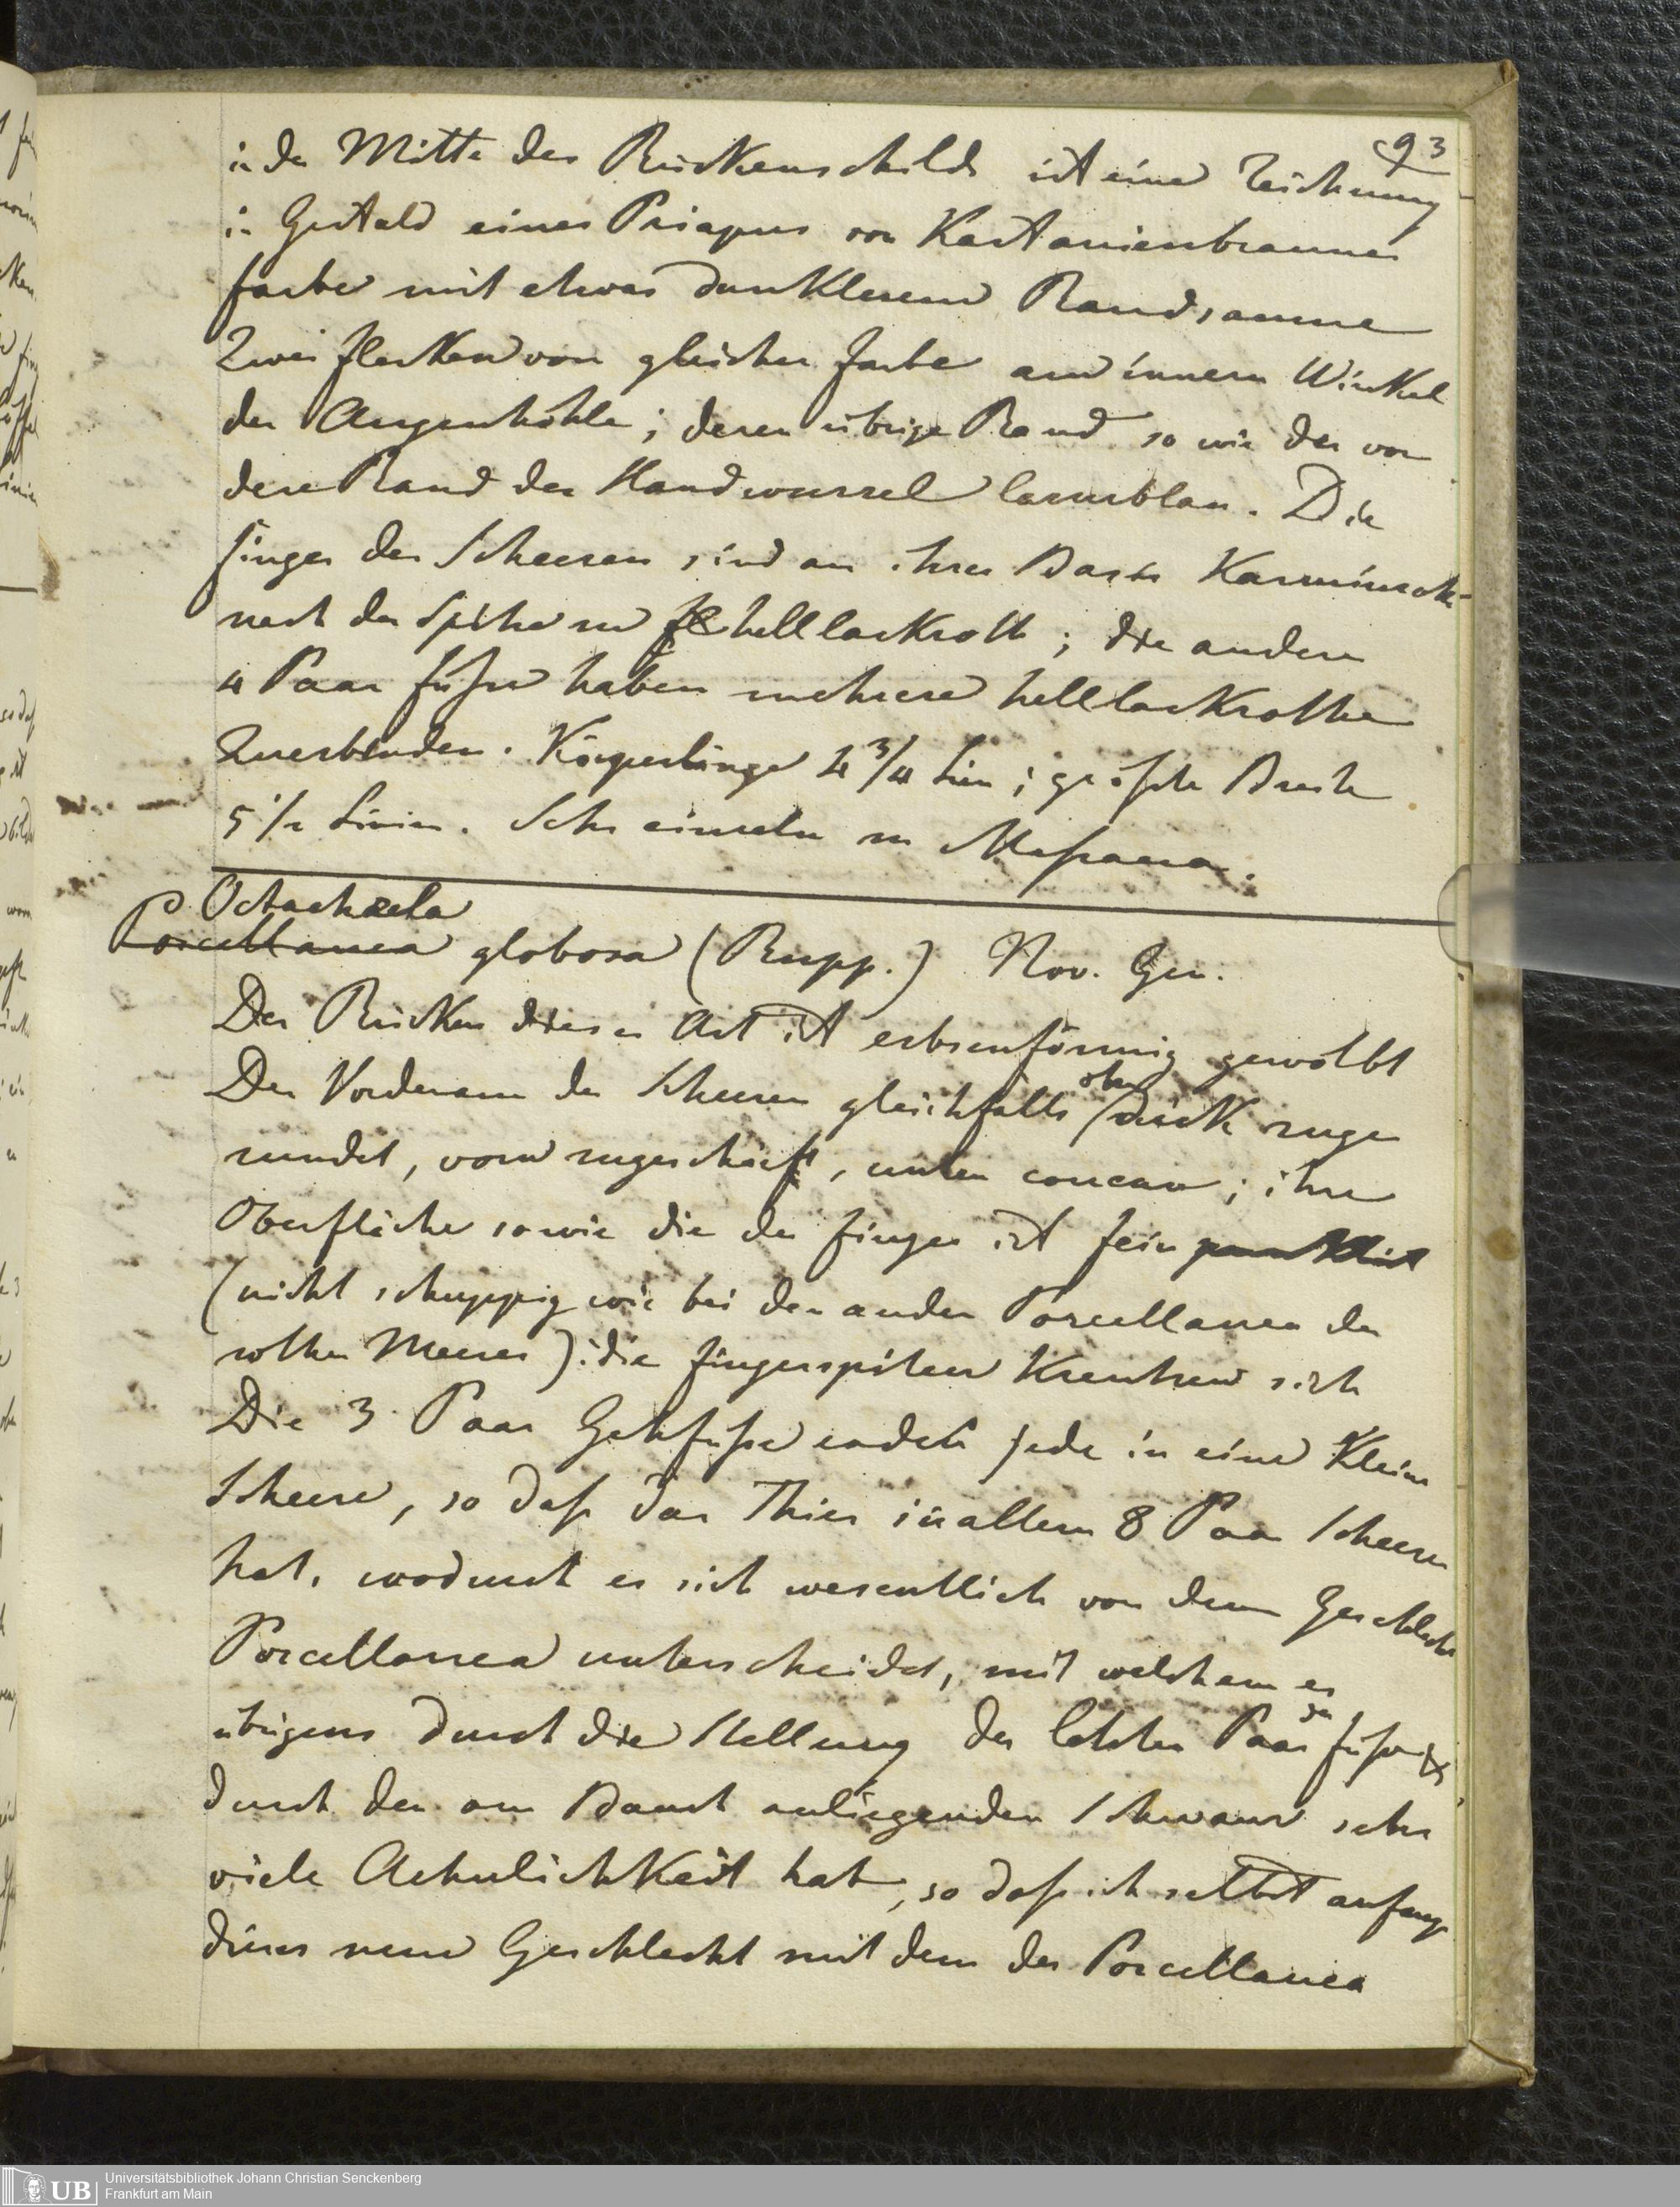 93
in der Mitte des Rückenschilds ist eine Zeichnung
in Gestald eines Priapus von Kastanienbrauner
farbe mit etwas dunklerem Rand, samme
Zwei flecken von gleicher farbe am innern Winkel
der Augenhöhle; deren übrige Rand so wie der vor
dere Rand der Handwurzel lazurblau. Die
finger der Scheeren sind an ihrer Basis Karminroth
nach der Spitze zu hell lackroth; die andern
4 Paar füße haben mehrere hell lackrothe
Querbinden. Körperlänge 4 3/4 Lin; größte Breite
5 1/2 Linien. Sehr einzeln zu Massaua.
Octochela
Porcellanea globosa (Rupp.) Nov. Gen.
Der Rücken dieser Art ist erbsenförmig gewölbt
oben
Der Vorderarm der Scheeren gleichfalls dick zuge
rundet, vorn zugeschärft, unten concav; ihre
Oberfläche sowie die der finger ist fein punktirt
(nicht schuppig wie bei den anden Porcellanea des
rothen Meeres): die fingerspitzen kreutzen sich
Die 3 Paar Gehfüße enden jede in eine kleine
Scheere, so daß das Thier in allem 8 Paar Scheeren
hat, wodurch es sich wesentlich von dem Geschlecht
Porcellanea unterscheidet, mit welchem es
übrigens durch die Stellung des letzten Paar der füße &
durch den am Bauch anliegenden Schwanz sehr
viele Aehnlichkeit hat, so daß ich selbst anfangs
dieses neue Geschlecht mit dem der Porcellanea
UB
Universitätsbibliothek Johann Christian Senckenberg
Frankfurt am Main